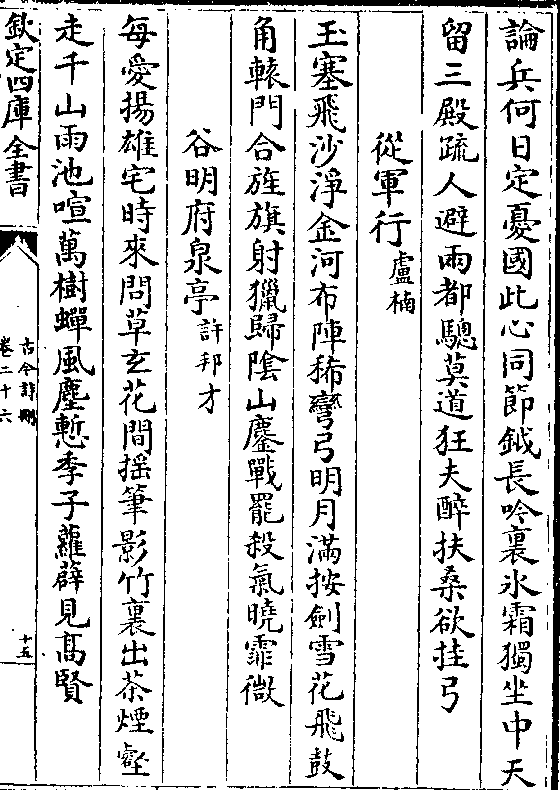 論兵何日定憂國此心同節鉞長吟裏氷霜獨坐中天
留三殿疏人避兩都驄莫道狂夫醉扶桑欲挂弓
從軍行盧楠
玉塞飛沙淨金河布陣稀彎弓明月滿按劍雪花飛鼓
角轅門合旌旗射獵歸陰山鏖戰罷殺氣曉霏微
谷明府泉亭許邦才
每愛揚雄宅時來問草玄花間揺筆影竹裏出茶煙壑
走千山雨池喧萬樹蟬風塵慙季子蘿薜見髙賢
欽定四庫全書
古今詩刪
卷二十六
十五